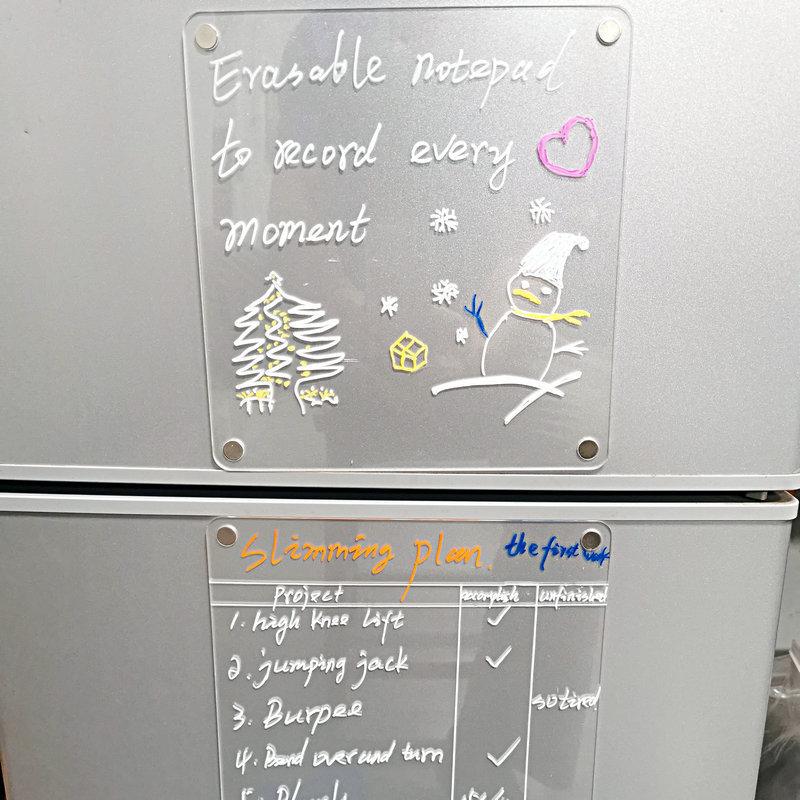 Erasable notepad
to record every
moment
Slimming plan. the first week
Project accomplish unfinished
1. high knee lift
2. jumping jack
3. Burpee so tired
4. Bend over and turn
5. Plank